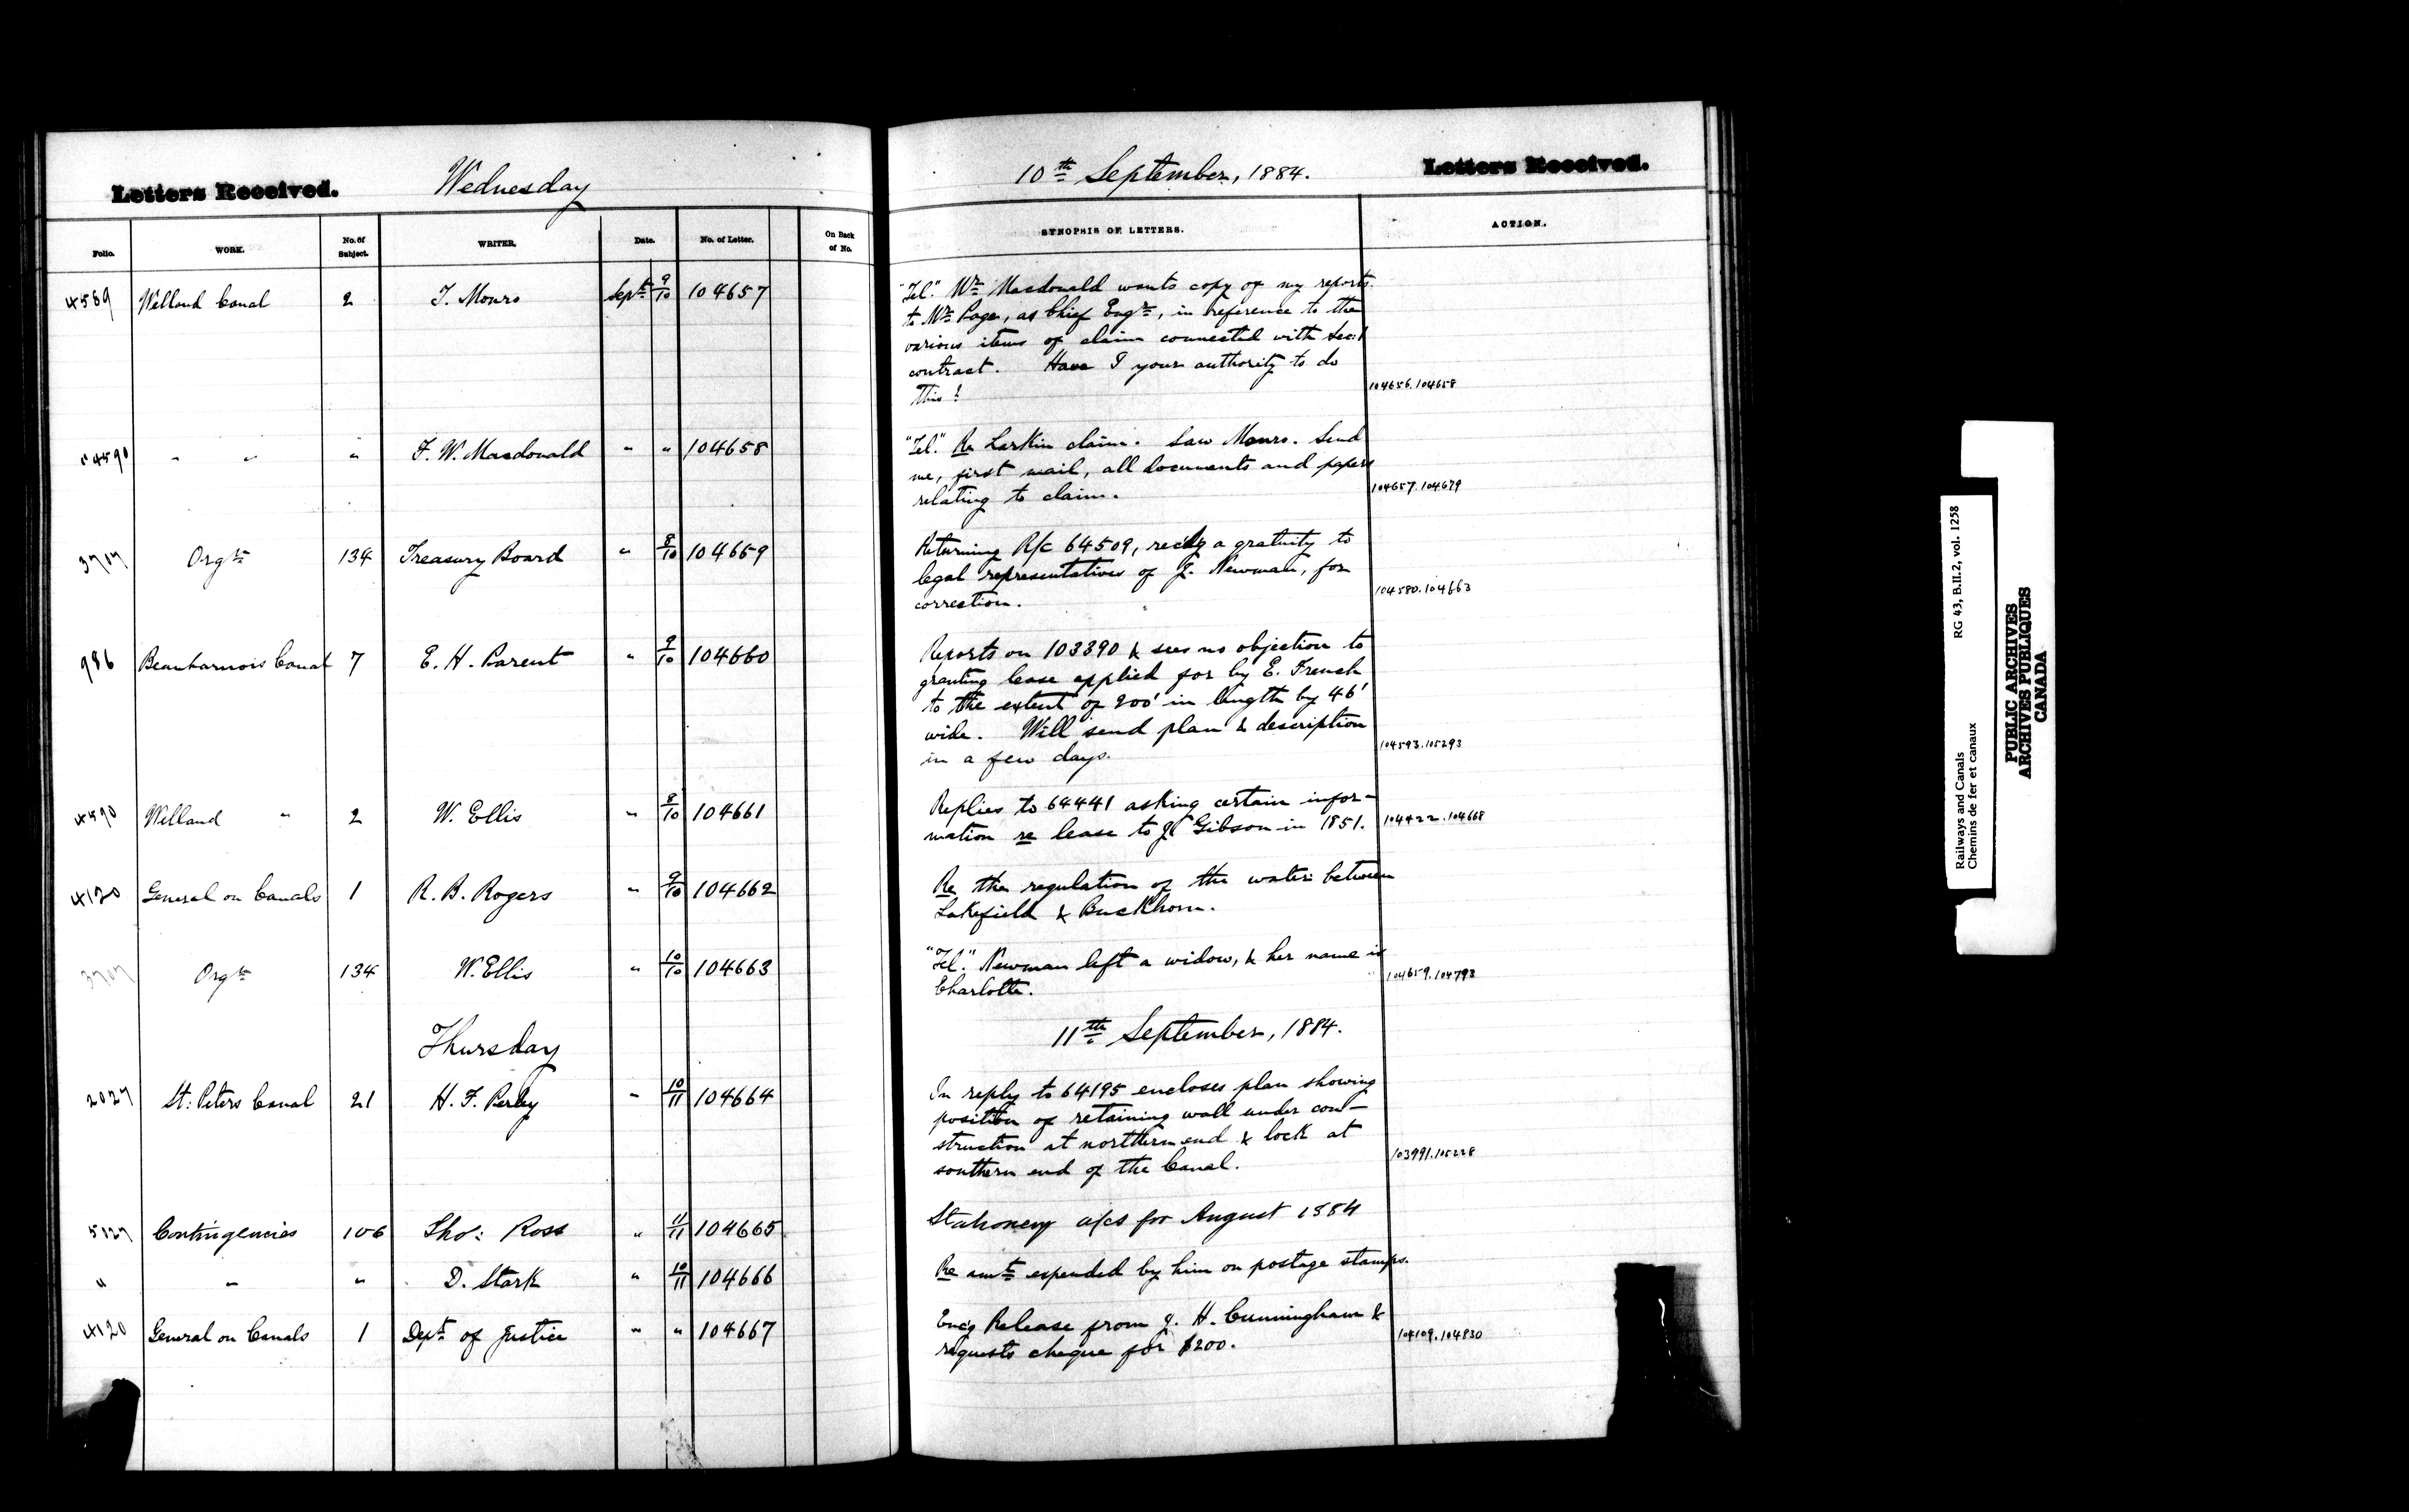 Letters Received. Wednesday 10th September, 1884. Letters Received.
Folio. WORK. No. of Subject. WRITER. Date. No. of Letter. On Back of No. SYNOPSIS OF LETTERS. ACTION.
4589 Welland Canal 2 T. Monro Sept. 9/10 104657 "Tel." Mr. Macdonald wants copy of my reports
to Mr. Page, as Chief Engr., in reference to the
various items of claim connected with Sec: 1
contract. Have I your authority to do
this? 104656.104658
4590 " " " F. W. Macdonald " " 104658 "Tel." Re Larkin claim. Saw Monro. Send
me, first mail, all documents and papers
relating to claim. 104657.104679
3707 Orgn. 134 Treasury Board " 8/10 104659 Returning R/c 64509, recdg a gratuity to
legal representatives of J. Newman, for
correction. 104580.104663
986 Beauharnois Canal 7 E. H. Parent " 9/10 104660 Reports on 103390 & sees no objection to
granting lease applied for by E. French
to the extent of 200' in length by 46'
wide. Will send plan & description
in a few days. 104593.105293
4590 Welland " 2 W. Ellis " 8/10 104661 Replies to 64441 asking certain infor-
mation re lease to J. Gibson in 1851. 104422.104668
4120 General on Canals 1 R. B. Rogers " 9/10 104662 Re the regulation of the water between
Lakefield & Buckhorn.
3707 Orgn. 134 W. Ellis " 10/10 104663 "Tel." Newman left a widow, & her name is
Charlotte. 104659.104793
Thursday 11th September, 1884.
2027 St: Peters Canal 21 H. F. Perley " 10/11 104664 In reply to 64195 encloses plan showing
position of retaining wall under con-
struction at northern end & lock at
southern end of the Canal. 103991.105228
5127 Contingencies 106 Tho: Ross " 11/11 104665 Stationery a/cs for August 1884
" " " D. Stark " 10/11 104666 Re amt. expended by him on postage stamps.
4120 General on Canals 1 Dept. of Justice " " 104667 Encg Release from J. H. Cunningham &
requests cheque for $200. 104109.104830
RG 43, B.II.2, vol. 1258
Railways and Canals
Chemins de fer et canaux
PUBLIC ARCHIVES
ARCHIVES PUBLIQUES
CANADA